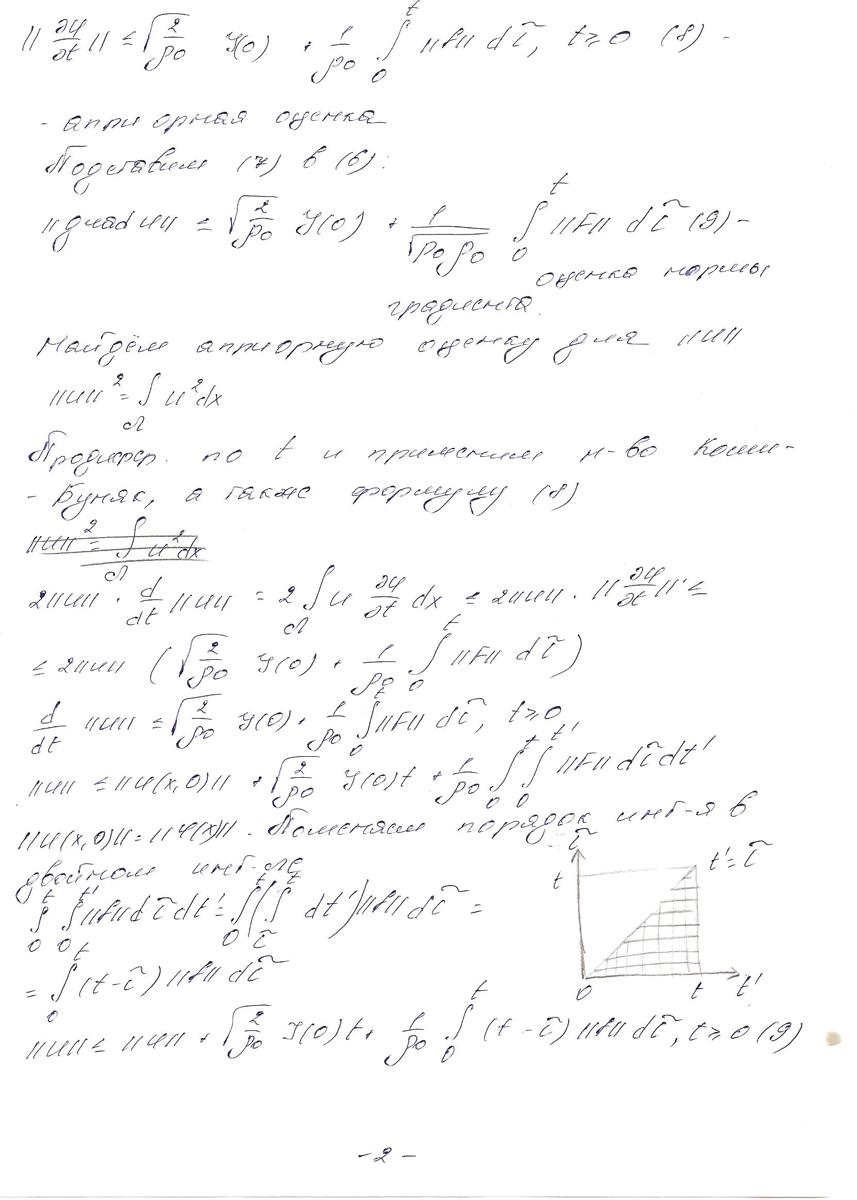 ||∂u/∂t|| ≤ √(2/ρ₀) y(0) + 1/ρ₀ ∫₀ᵗ ||f|| dτ̃, t ≥ 0 (8) -
- априорная оценка
Подставим (7) в (6):
||grad u|| ≤ √(2/p₀) y(0) + 1/√(p₀ρ₀) ∫₀ᵗ ||F|| dτ̃ (9) -
оценка нормы
градиента.
Найдём априорную оценку для ||u||
||u||² = ∫_Ω u²dx
Продифф. по t и применим н-во Коши-
- Буняк, а также формулу (8)
||u||² = ∫_Ω u²dx
2||u|| · d/dt ||u|| = 2 ∫_Ω u ∂u/∂t dx ≤ 2||u|| · ||∂u/∂t|| ≤
≤ 2||u|| (√(2/ρ₀) y(0) + 1/ρ₀ ∫₀ᵗ ||F|| dτ̃)
d/dt ||u|| ≤ √(2/ρ₀) y(0) + 1/ρ₀ ∫₀ᵗ ||F|| dτ̃, t ≥ 0
||u|| ≤ ||u(x,0)|| + √(2/ρ₀) y(0)t + 1/ρ₀ ∫₀ᵗ ∫₀ᵗ' ||F|| dτ̃dt'
||u(x,0)|| = ||φ(x)||. Поменяем порядок инт-я в
двойном инт-ле
∫₀ᵗ ∫₀ᵗ' ||f|| dτ̃dt' = ∫₀ᵗ (∫_τ̃ᵗ dt') ||f|| dτ̃ =
= ∫₀ᵗ (t-τ̃) ||f|| dτ̃
τ̃
t
t' = τ̃
0 t t'
||u|| ≤ ||u|| + √(2/ρ₀) y(0)t + 1/ρ₀ ∫₀ᵗ (t-τ̃) ||f|| dτ̃, t ≥ 0 (9)
-2-